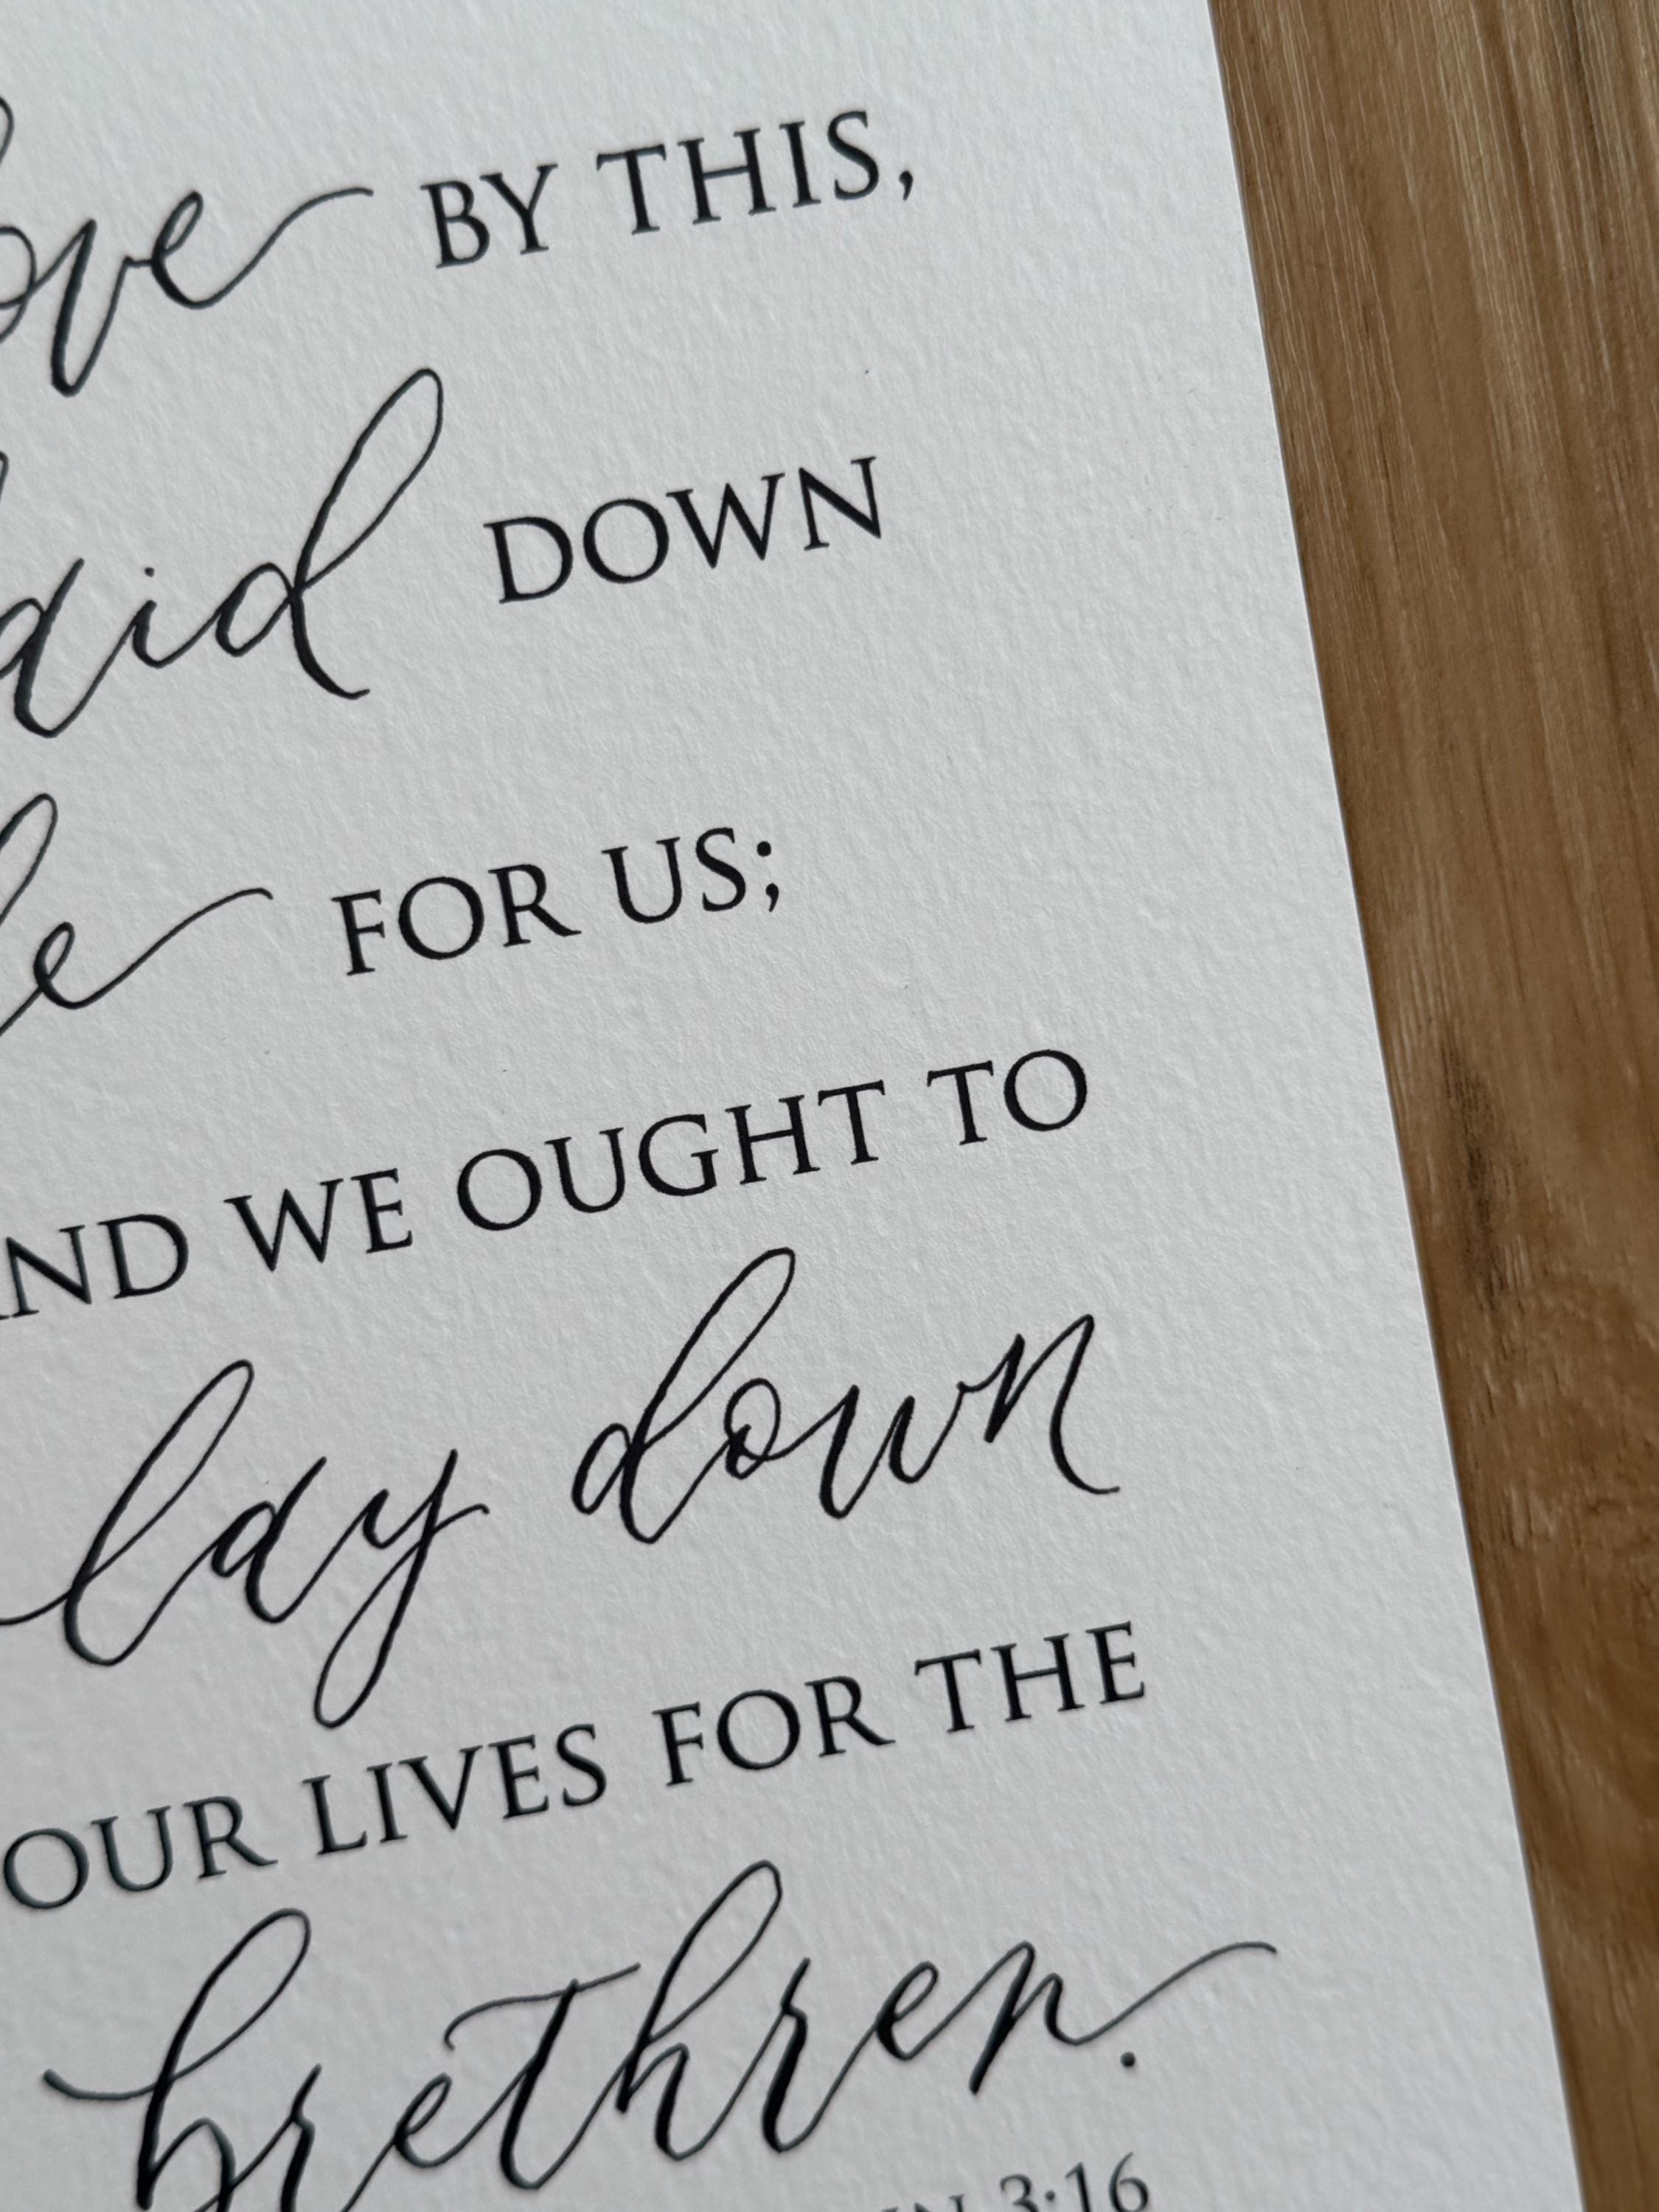 ove BY THIS,
aid DOWN
e FOR US;
AND WE OUGHT TO
lay down
OUR LIVES FOR THE
brethren.
N 3:16